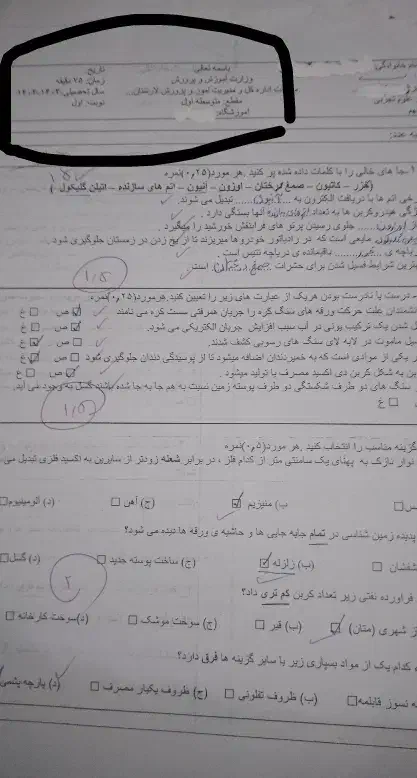 نام خانوادگی:
باسمه تعالی
تاریخ:
وزارت آموزش و پرورش
زمان: ۷۵ دقیقه
اداره کل و مدیریت آموزش و پرورش لارستان
سال تحصیلی:
علوم تجربی
مقطع: متوسطه اول
نوبت: اول
آموزشگاه:
۱-جا های خالی را با کلمات داده شده پر کنید .هر مورد(۰,۲۵)نمره
(کربن – کاتیون – صمغ درختان – اوزون – آنیون – اتم های سازنده – اتیلن گلیکول)
اتم ها با دریافت الکترون به ... آنیون ... تبدیل می شوند.
هیدروکربن ها به تعداد کربن های آنها بستگی دارد.
از اوزون ..... جلوی رسیدن پرتو های فرابنفش خورشید را میگیرد.
مایعی است که در رادیاتور خودروها میریزند تا از یخ زدن در زمستان جلوگیری شود.
باقیمانده ی دریاچه تتیس است.
شرایط فسیل شدن برای حشرات صمغ درختان است.
۱,۵
درست یا نادرست بودن هریک از عبارت های زیر را تعیین کنید هرمورد(۰,۲۵)نمره
دانشمندان علت حرکت ورقه های سنگ کره را جریان همرفتی سست کره می نامند ☑ ص ☐ غ
حل شدن یک ترکیب یونی در آب سبب افزایش جریان الکتریکی می شود. ☑ ص ☐ غ
ماموت در لابه لای سنگ های رسوبی کشف شدند. ☐ ص ☑ غ
یکی از موادی است که به خمیردندان اضافه میشود تا از پوسیدگی دندان جلوگیری شود ☐ ص ☑ غ
به شکل کربن دی اکسید مصرف یا تولید میشود. ☑ ص ☐ غ
سنگ های دو طرف شکستگی دو طرف پوسته زمین نسبت به هم جا به جا شده باشند گسل به وجود می آید.
☐ غ
گزینه مناسب را انتخاب کنید .هر مورد(۰,۵)نمره
نوار نازک به پهنای یک سانتی متر از کدام فلز ، در برابر شعله زودتر از سایرین به اکسید فلزی تبدیل می
مس ☐ ب) منیزیم ☑ ج) آهن ☐ د) آلومینیوم ☐
پدیده زمین شناسی در تمام جابه جایی ها و حاشیه ی ورقه ها دیده می شود؟
آتشفشان ☐ (ب) زلزله ☑ ج) ساخت پوسته جدید ☐ د) گسل ☐
۲
فراورده نفتی زیر تعداد کربن کم تری داد؟
گاز شهری (متان) ☑ (ب) قیر ☐ (ج) سوخت موشک ☐ د)سوخت کارخانه ☐
کدام یک از مواد بسپاری زیر با سایر گزینه ها فرق دارد؟
نسوز قابلمه ☐ (ب) ظروف تفلونی ☐ (ج) ظروف یکبار مصرف ☐ (د) پارچه پشمی